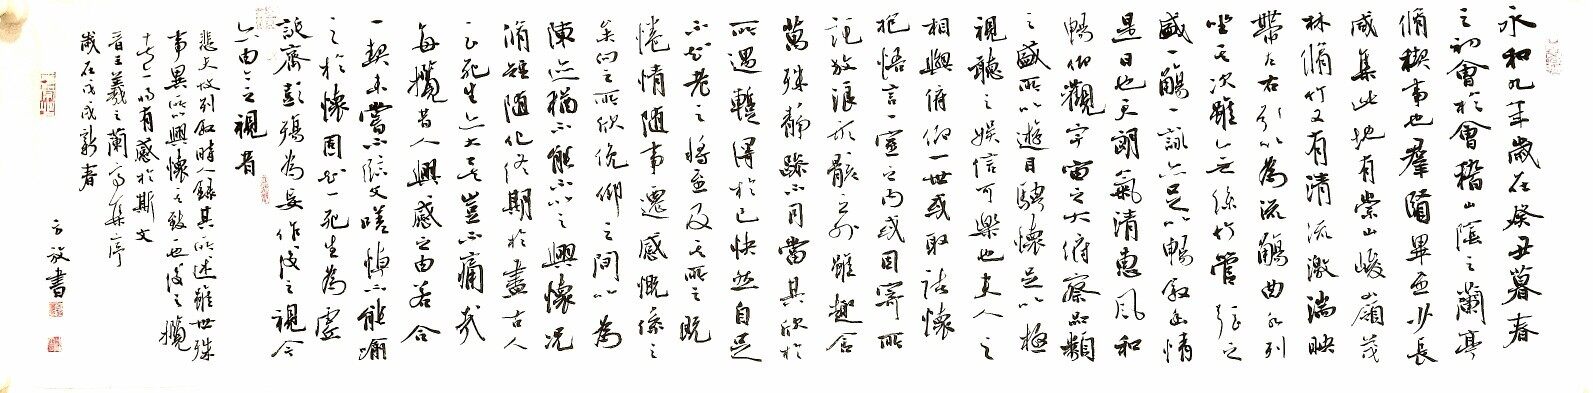 永和九年歲在癸丑暮春
之初會於會稽山陰之蘭亭
脩稧事也羣賢畢至少長
咸集此地有崇山峻嶺茂
林脩竹又有清流激湍映
帶左右引以為流觴曲水列
坐其次雖無絲竹管弦之
盛一觴一詠亦足以暢敘幽情
是日也天朗氣清惠風和
暢仰觀宇宙之大俯察品類
之盛所以遊目騁懷足以極
視聽之娛信可樂也夫人之
相與俯仰一世或取諸懷
抱悟言一室之內或因寄所
託放浪形骸之外雖趣舍
萬殊靜躁不同當其欣於
所遇暫得於己快然自足
不知老之將至及其所之既
惓情隨事遷感慨係之
矣向之所欣俛仰之間以為
陳迹猶不能不以之興懷況
脩短隨化終期於盡古人
云死生亦大矣豈不痛哉
每攬昔人興感之由若合
一契未嘗不臨文嗟悼不能喻
之於懷固知一死生為虛
誕齊彭殤為妄作後之視今
亦由今之視昔
悲夫故列敘時人錄其所述雖世殊
事異所以興懷其致一也後之攬
者亦將有感於斯文
晉王羲之蘭亭集序
歲在戊戌新春
方放書